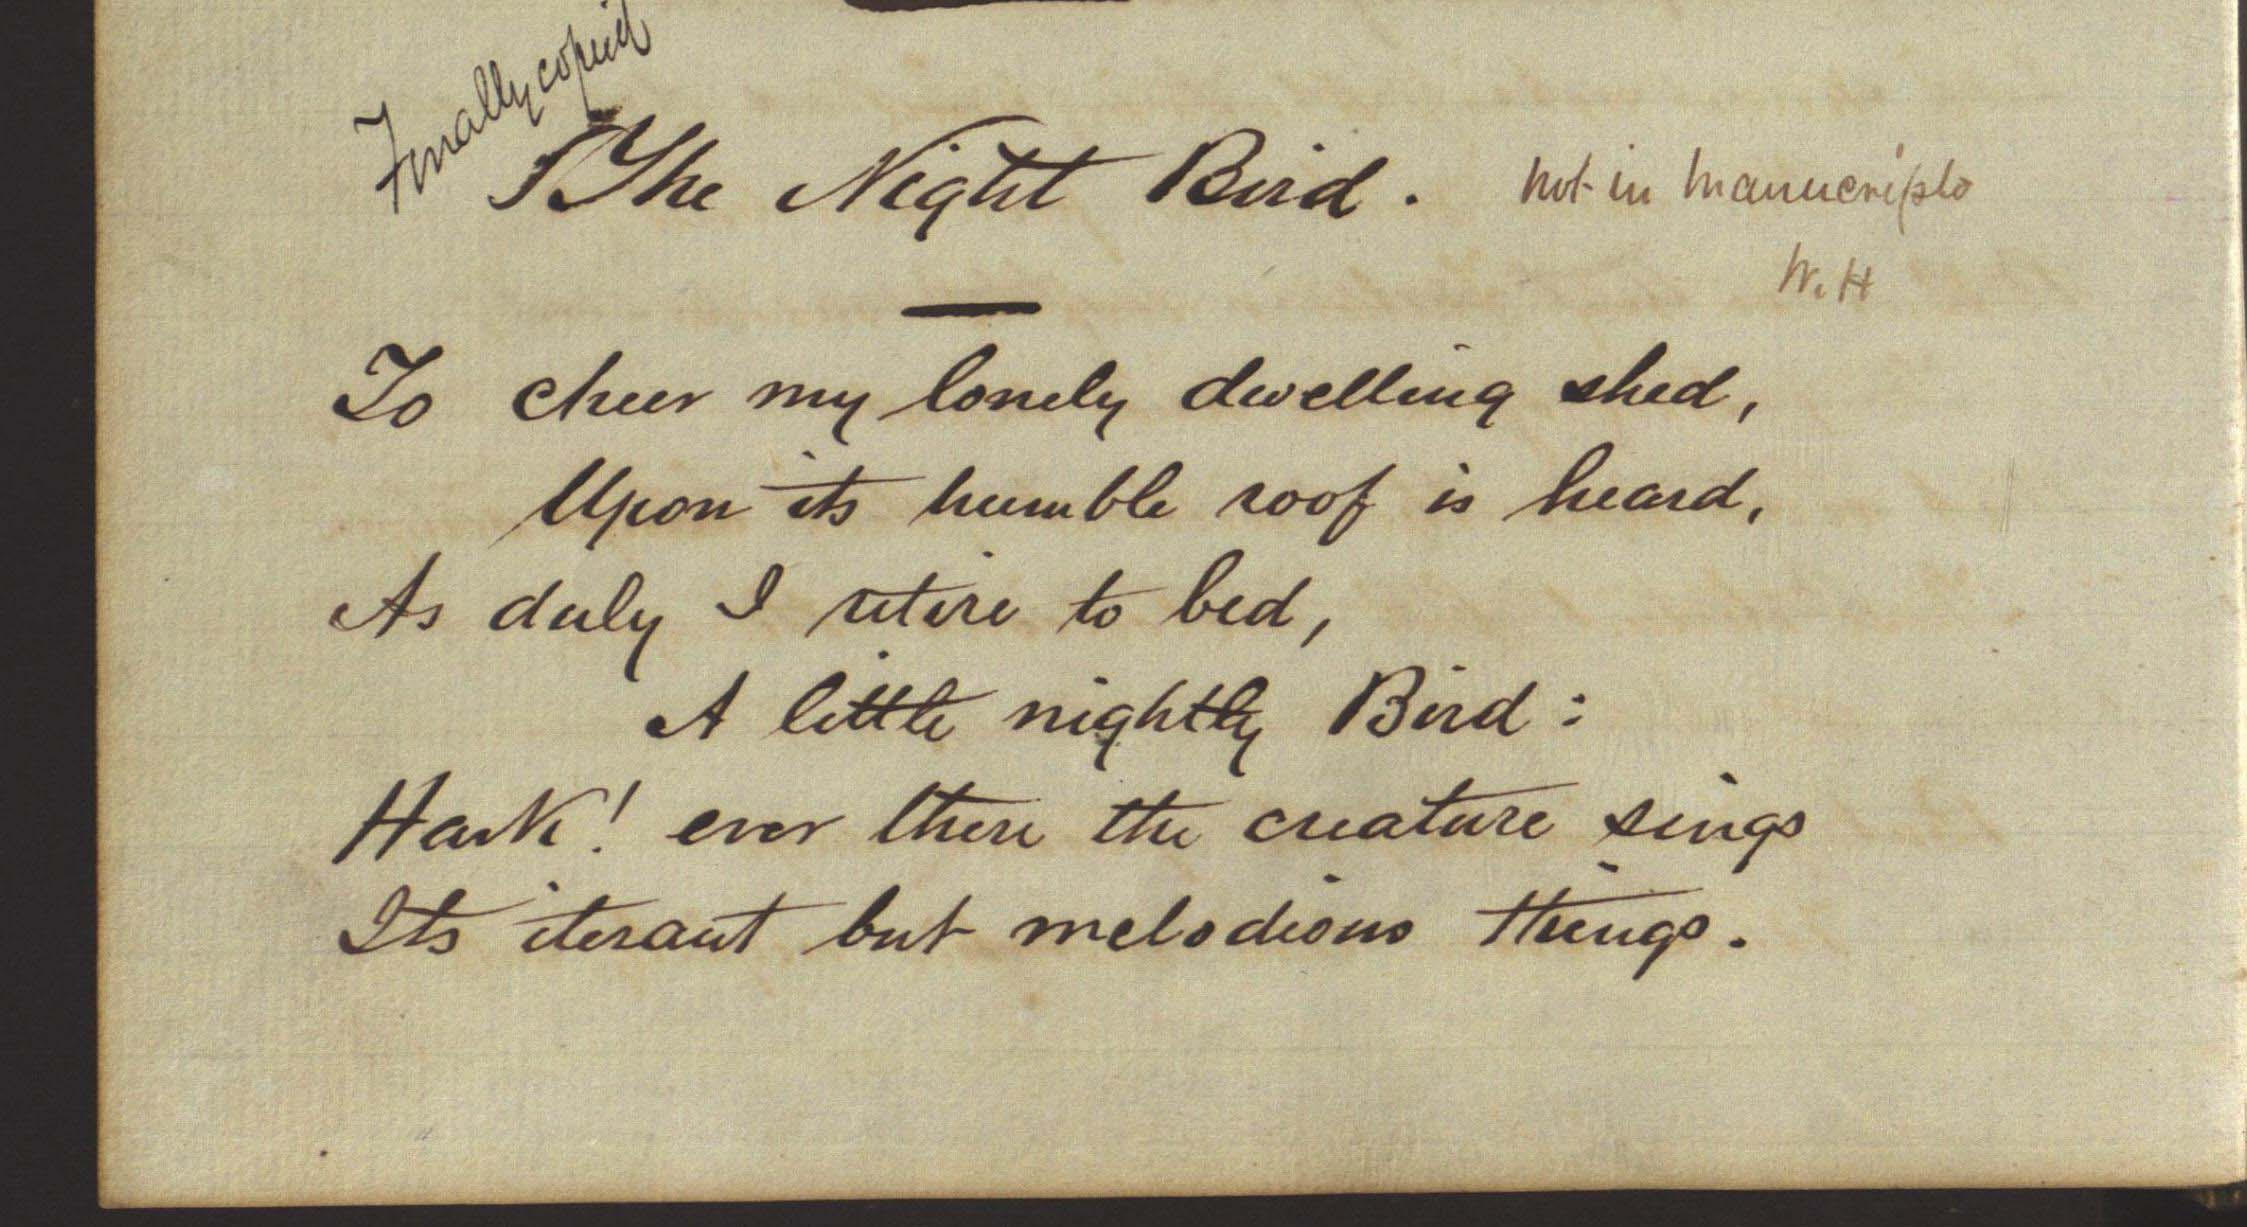 Finally copied
The Night Bird.
not in manucripts
W. H
To cheer my lonely dwelling shed,
Upon its humble roof is heard,
As duly I retire to bed,
A little nightly Bird:
Hark! ever there the creature sings
Its iterant but melodious things.